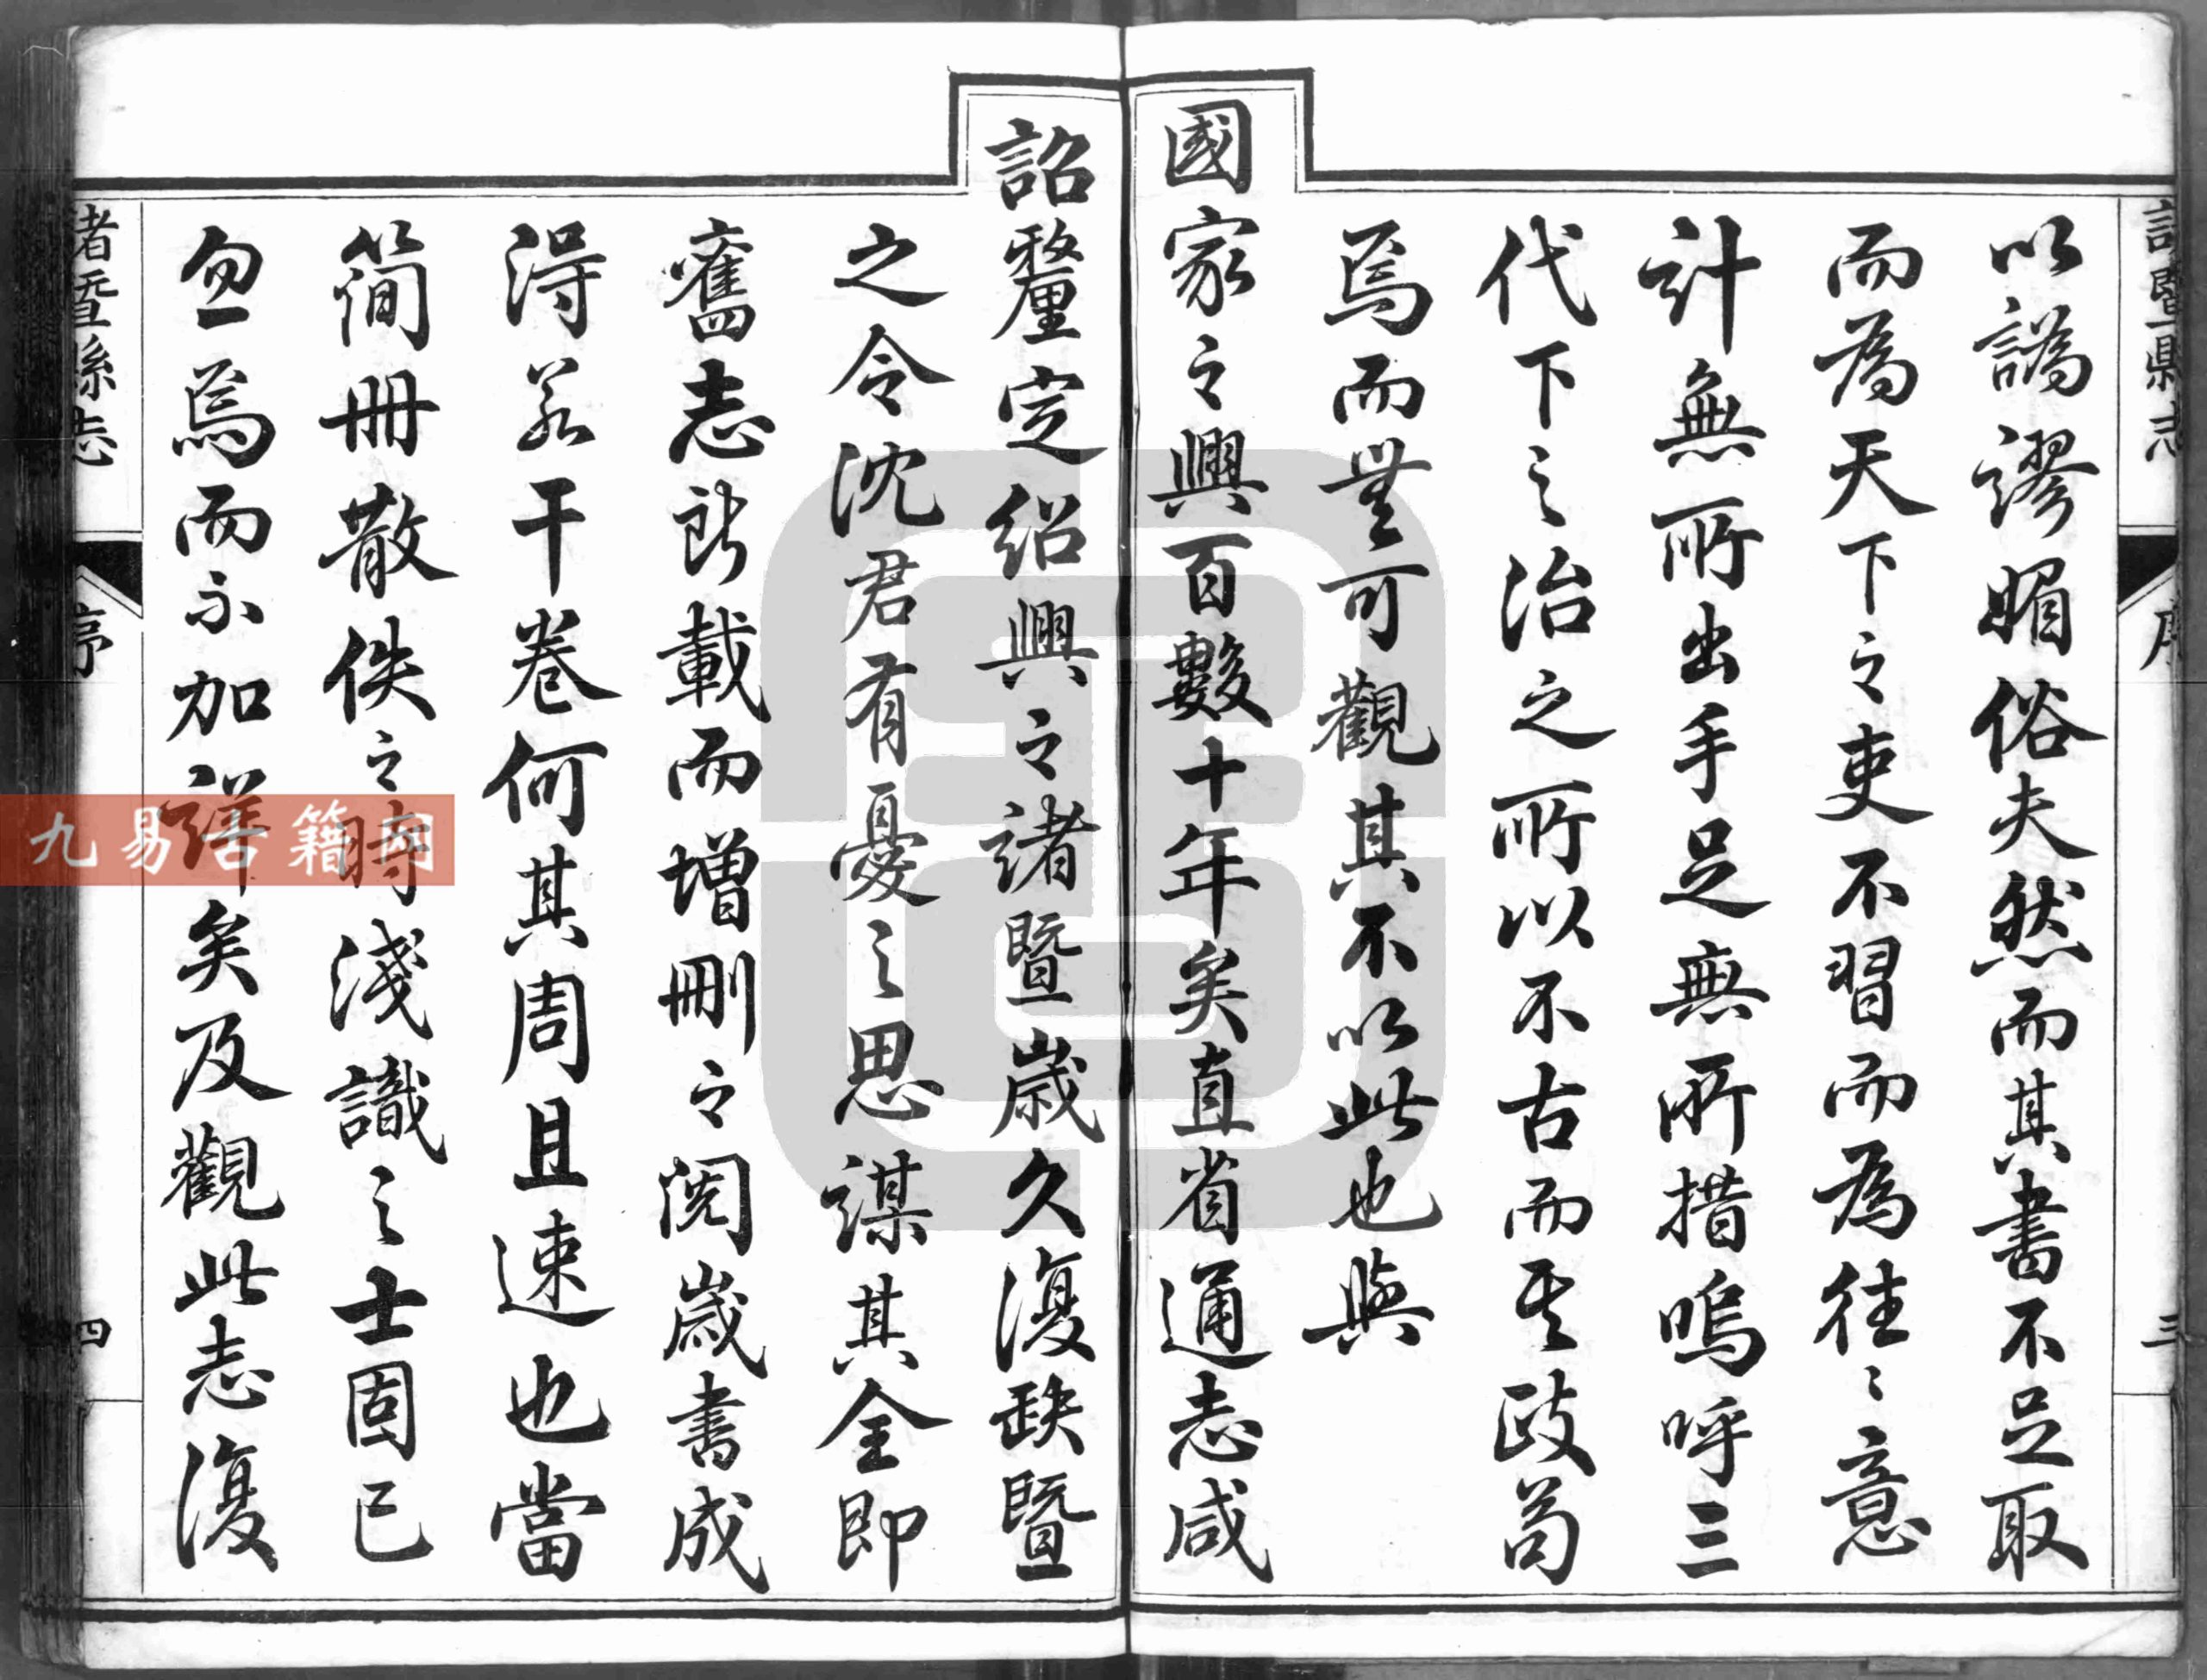 諸暨縣志
序
三
以譌謬媚俗夫然而其書不足取
而為天下之吏不習而為往〻意
計無所出手足無所措嗚呼三
代下之治之所以不古而其政茍
焉而無可觀其不以此也與
國家之興百數十年矣直省通志咸
詔釐定紹興之諸暨歲久復缺暨
之令沈君有憂之思謀其全即
舊志所載而增刪之閱歲書成
得若干卷何其周且速也當
簡冊散佚之時淺識之士固已
忽焉而不加詳矣及觀此志復
諸暨縣志
序
四
九易古籍网